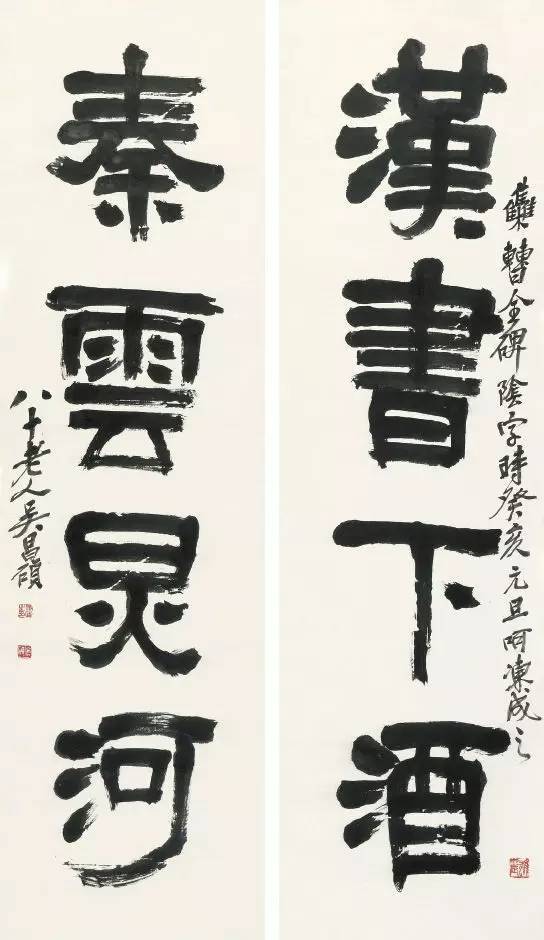 雧曹全碑陰字時癸亥元旦呵凍成之
漢書下酒
秦雲炅河
八十老人吳昌碩